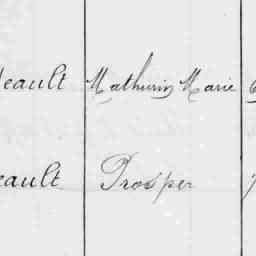 eault Mathurin Marie
eault Prosper